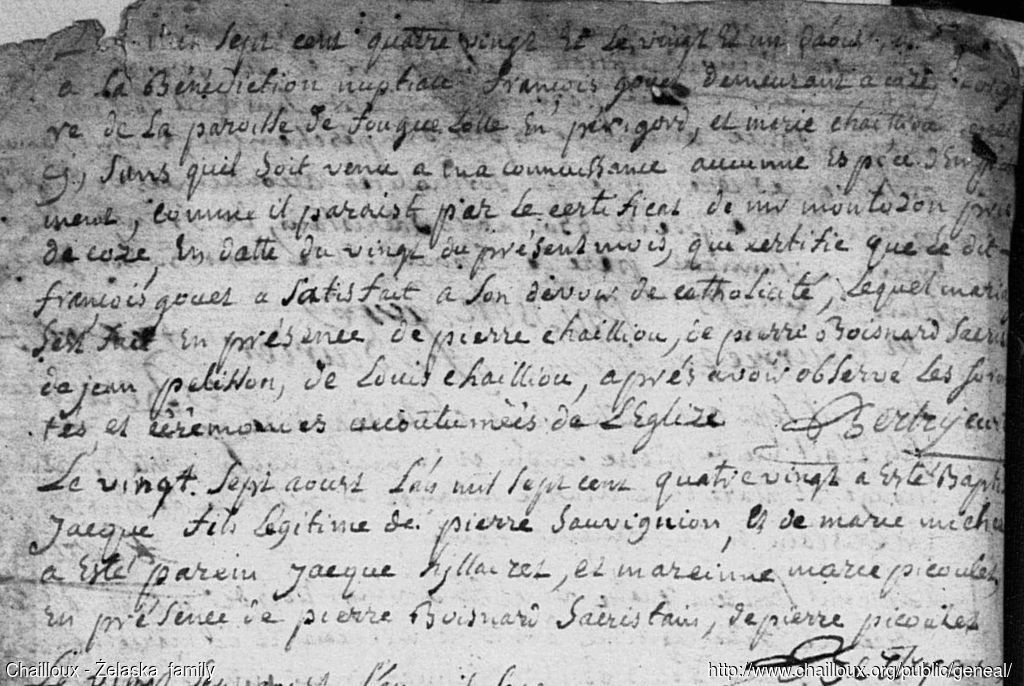 sept cent quatre vingt et le vingt et un d'aoust
a la Bénédiction nuptiau françois gouet demeurant a coze
re de la paroisse de fouqueLolle En périgord, et merie chailliou
sans quil soit venu a ma connoissance aucunne Espéce d'Em
ment, comme il paraist par le certificat de mr montozon
de coze, En datte du vingt du présent mois, qui certifie que le dit
françois gouet a satisfait a son devoir de catholicité, Lequel maria
sest fait En présence de pierre chailliou, de pierre Boisnard Sacri
de jean pelisson, de Louis chailliou, aprés avoir observé Les for
tés, et cérémonies accoutumées de LEglize Bertry curé
Le vingt sept aoust L'an mil sept cent quatre vingt a Esté Bapti
Jacque fils Légitime de pierre Sauvignion, et de marie miche
a Esté parein Jacque hillairet, et mareinne marie picoulet,
En présence de pierre Boisnard Sacristain, de pierre picoulet
Chailloux - Żelaska family http://www.chailloux.org/public/geneal/